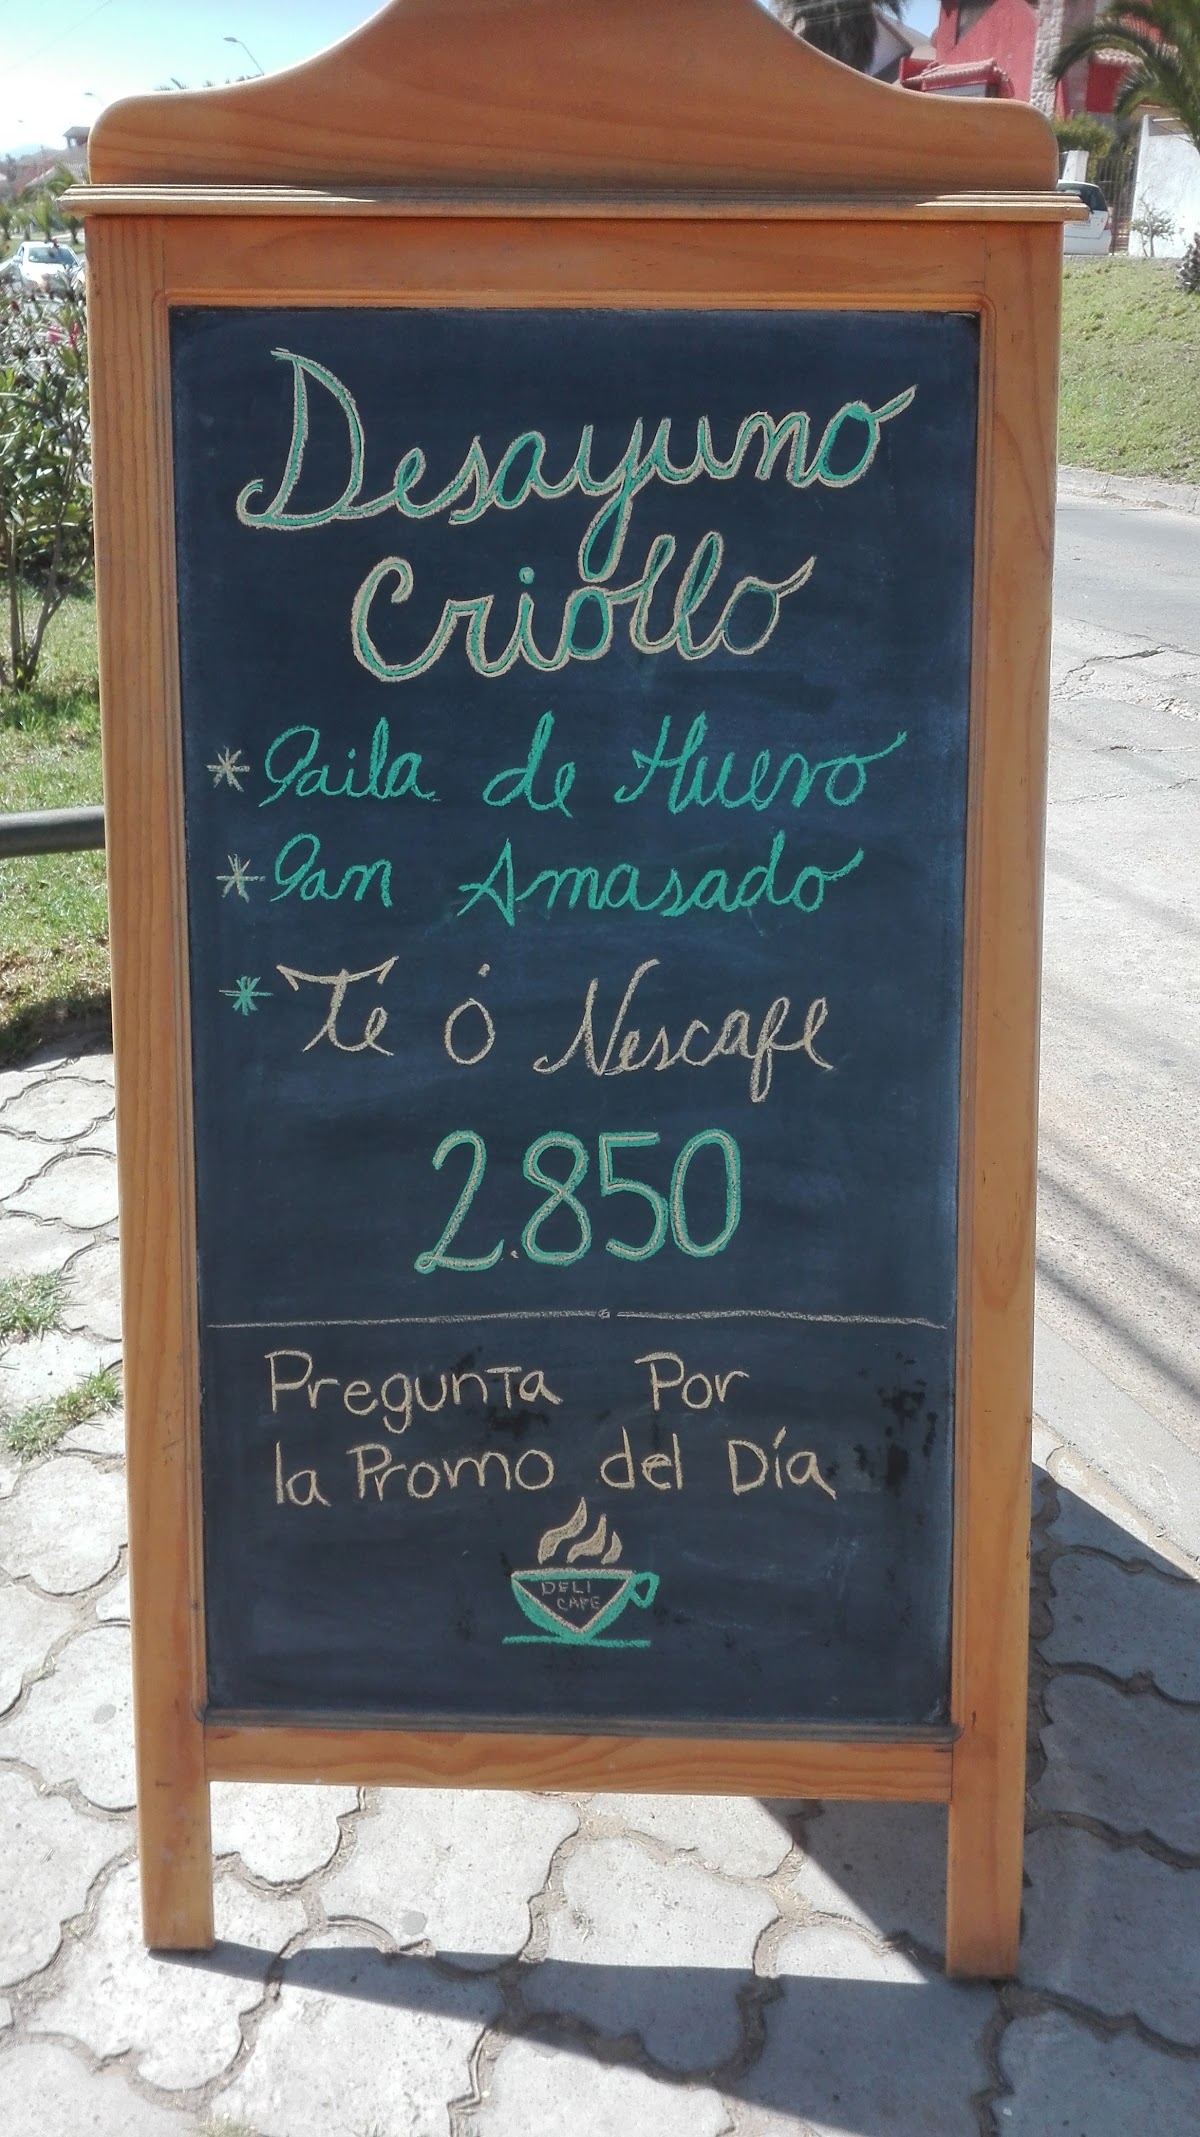 Desayuno
Criollo
* Paila de Huevo
* Pan Amasado
* Té ó Nescafe
2.850
Pregunta Por
la Promo del Día
DELI
CAFE